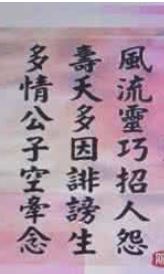 風流靈巧招人怨
壽夭多因誹謗生
多情公子空牽念